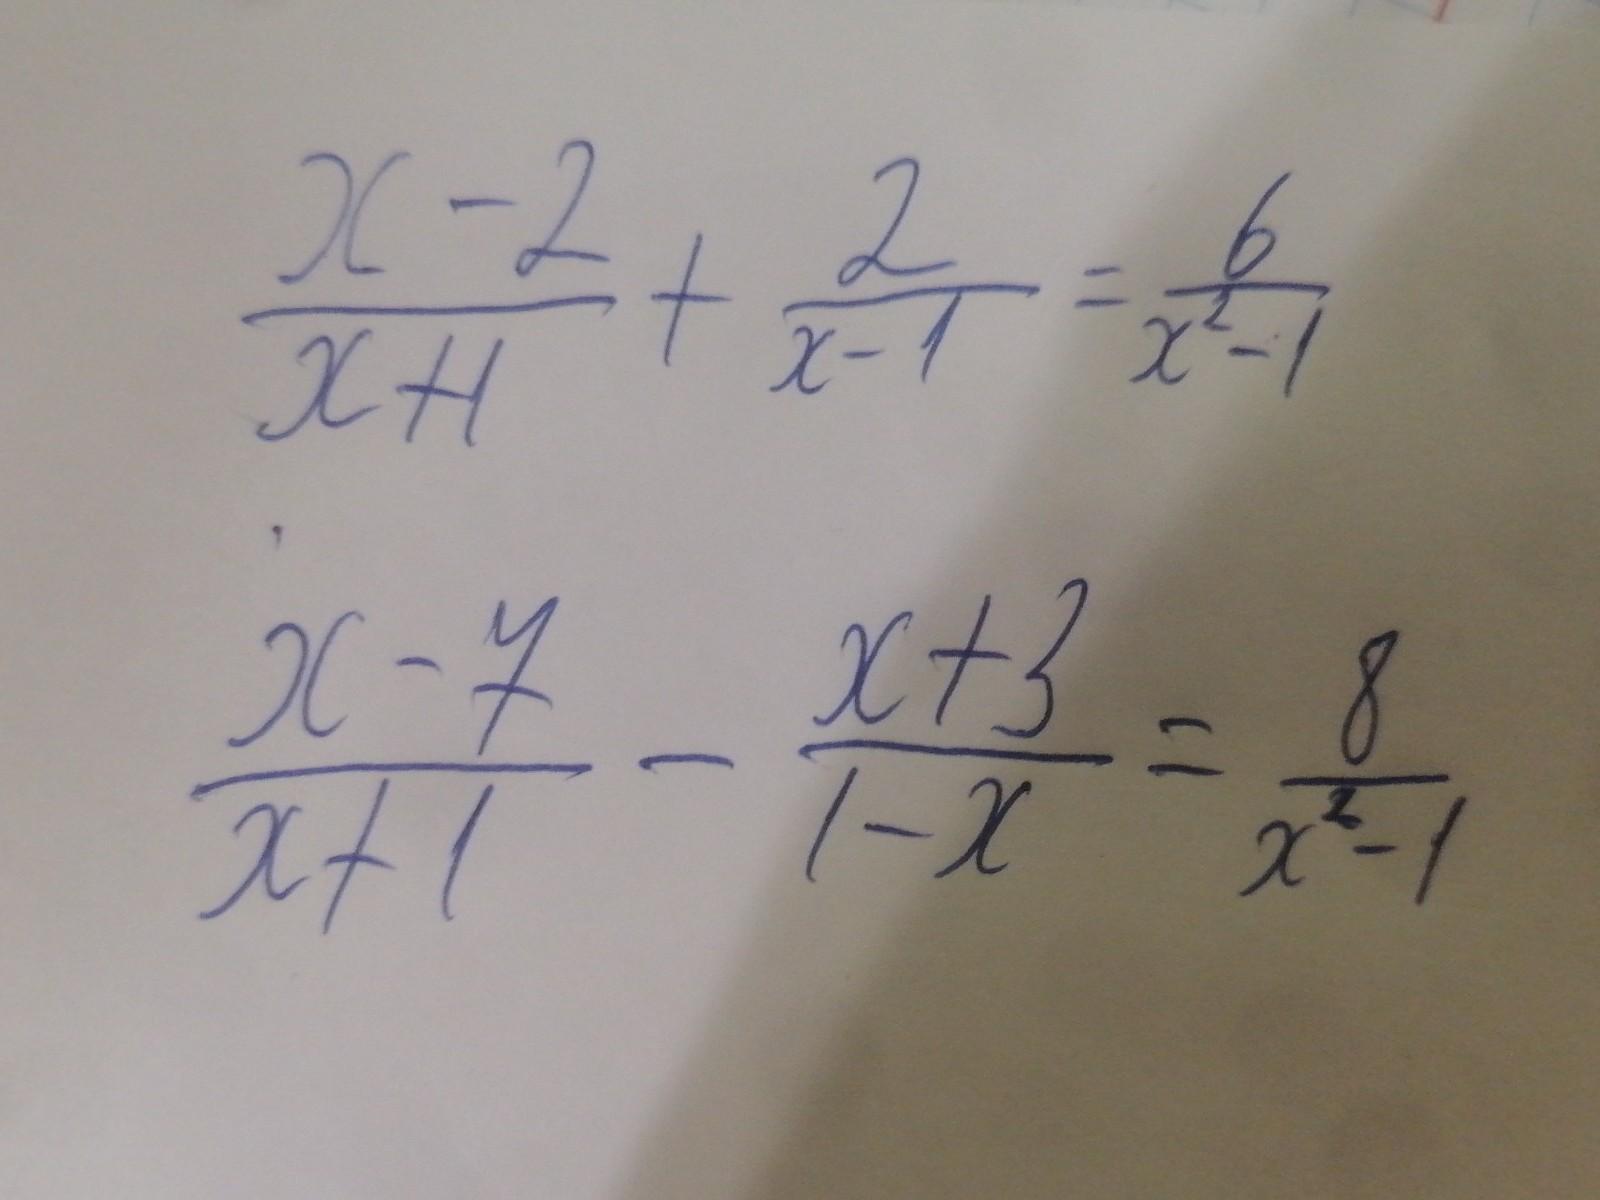 (x-2)/(x+1) + 2/(x-1) = 6/(x²-1)
(x-7)/(x+1) - (x+3)/(1-x) = 8/(x²-1)